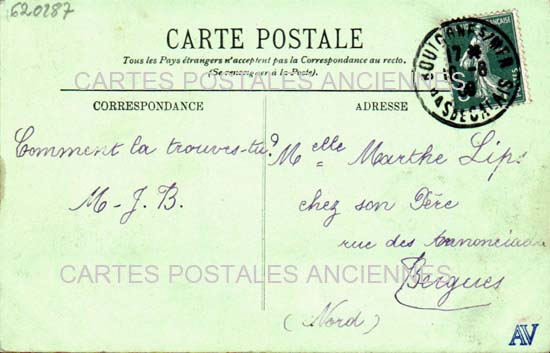 620287
CARTE POSTALE
Tous les Pays étrangers n'acceptent pas la Correspondance au recto.
(Se renseigner à la Poste).
CARTES POSTALES ANCIENNES
CORRESPONDANCE
ADRESSE
BOULOGNE S/MER
PAS DE CALAIS
Comment la trouves-tu?
M-J.B.
Melle Marthe Lips
chez son Père
rue des Annonciades
CARTES POSTALES ANCIENNES
Bergues
(Nord)
AV